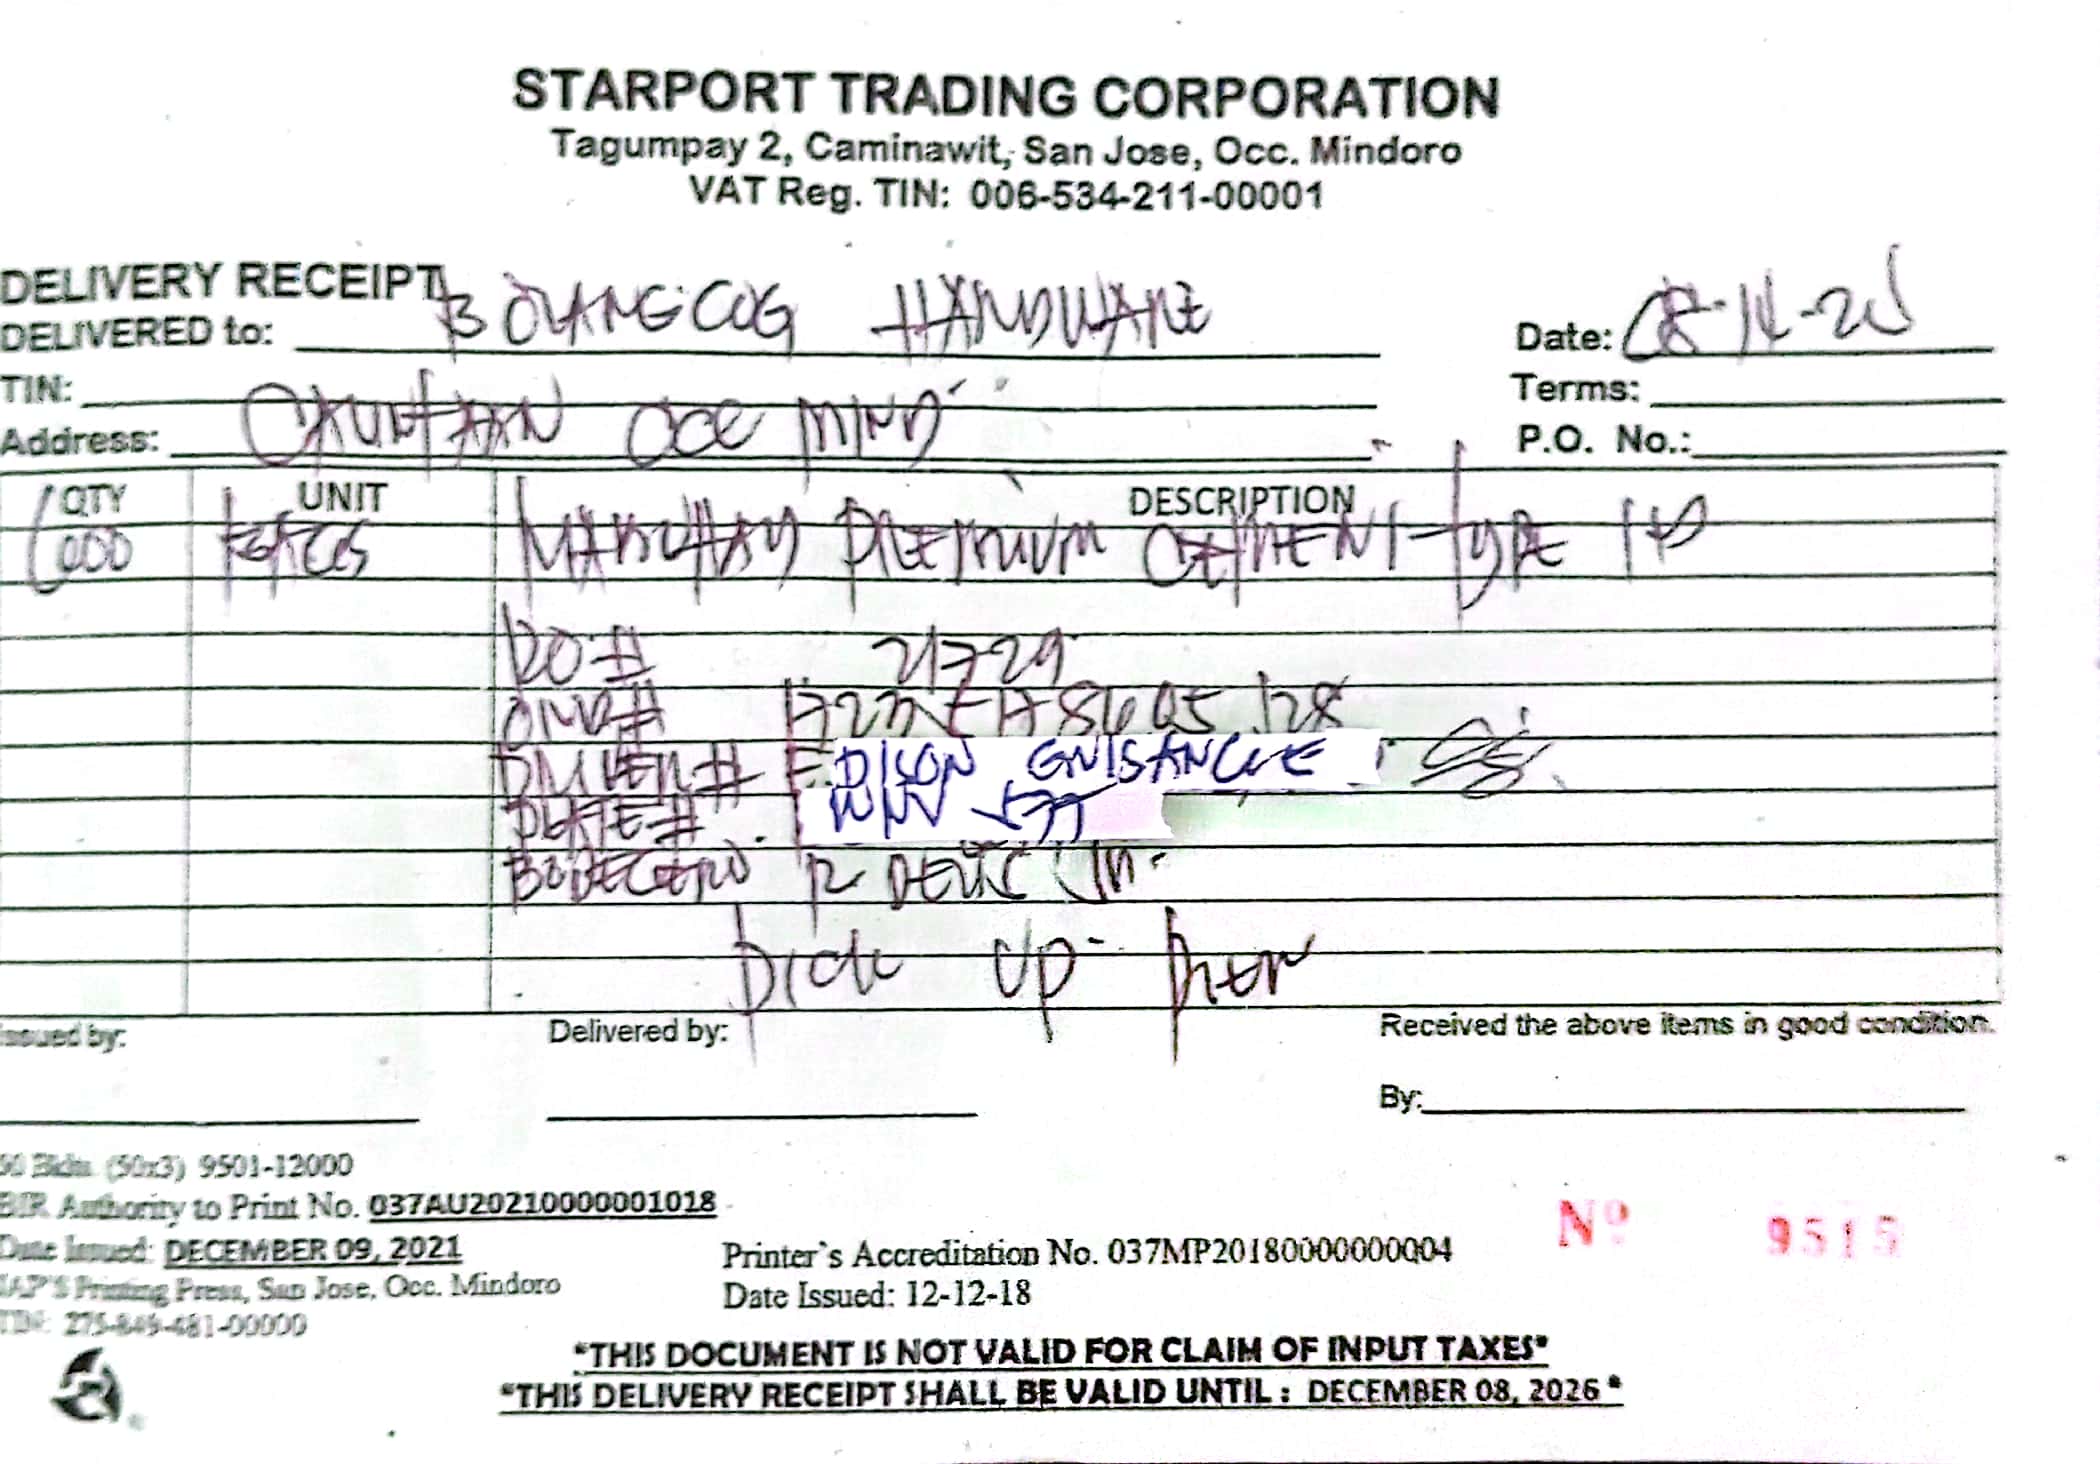 STARPORT TRADING CORPORATION
Tagumpay 2, Caminawit, San Jose, Occ. Mindoro
VAT Reg. TIN: 006-534-211-00001
DELIVERY RECEIPT
DELIVERED to: HARDWARE
Date: 08-14-25
TIN:
Terms:
Address: OCC MIND
P.O. No.:
QTY UNIT DESCRIPTION
BAGS PREMIUM CEMENT TYPE
DO# 21729
DRIVER# EDISON
PLATE#
BODEGERO
PICK UP
Issued by:
Delivered by:
Received the above items in good condition.
By:
(50x3) 9501-12000
BIR Authority to Print No. 037AU20210000001018
Date Issued: DECEMBER 09, 2021
Printing Press, San Jose, Occ. Mindoro
TIN: 275-849-481-00000
Printer's Accreditation No. 037MP20180000000004
Date Issued: 12-12-18
Nº 9515
*THIS DOCUMENT IS NOT VALID FOR CLAIM OF INPUT TAXES*
*THIS DELIVERY RECEIPT SHALL BE VALID UNTIL : DECEMBER 08, 2026*